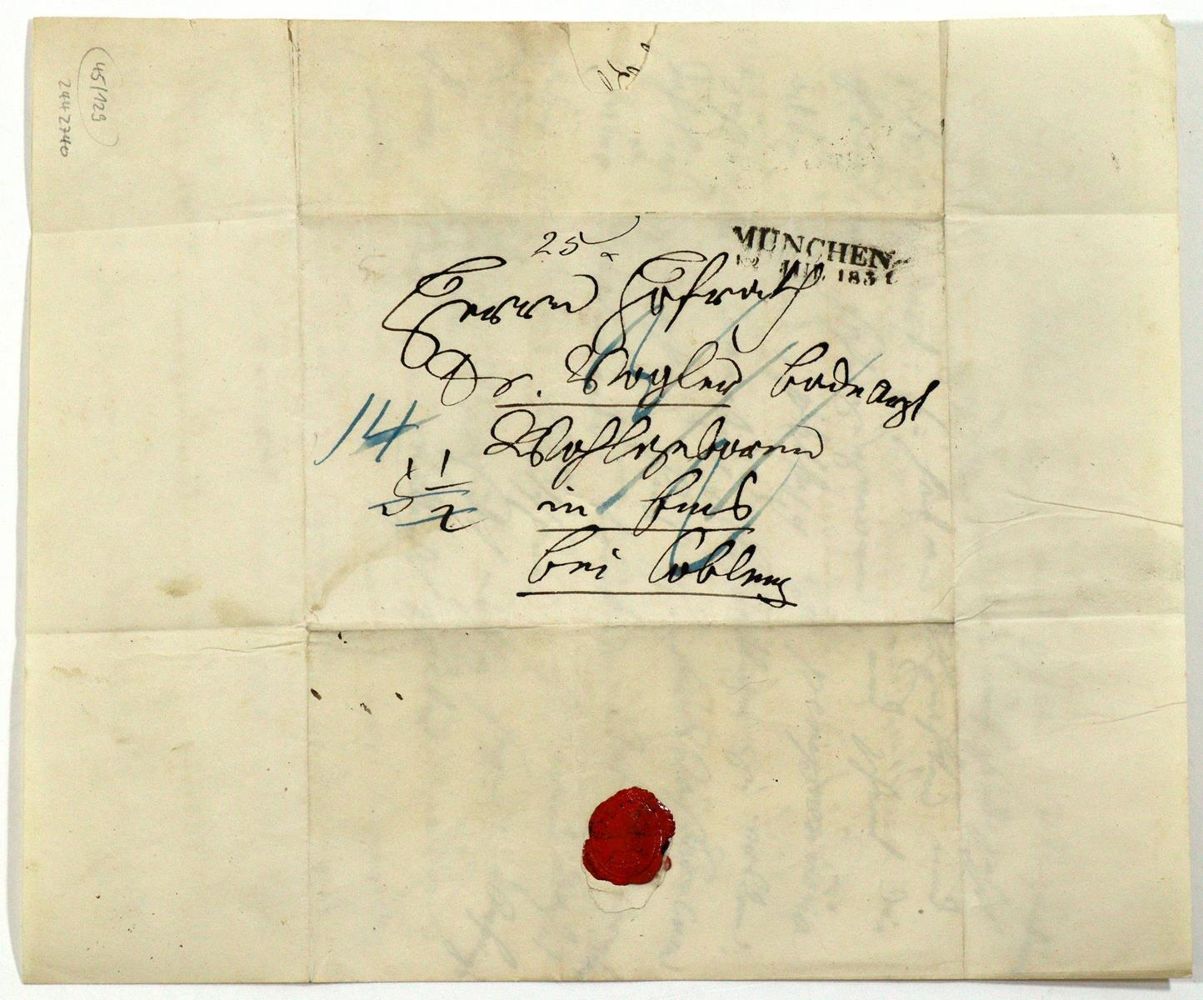 45/129
2442740
25
MÜNCHEN
JUL. 183
Herrn Hofrath
Dr. Vogler Badearzt
14
Wohlgeboren
5 1/2
in Ems
bei Coblenz